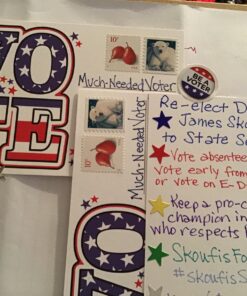 10¢
VO
TE
Much-Needed Voter
BE A
VOTER
10¢
Much-Needed Voter
VO
Re-elect D
James Sko
to State S
Vote absentee
vote early from
or vote on E-D
Keep a pro-c
champion in
who respects
Skoufis Fo
#skoufis